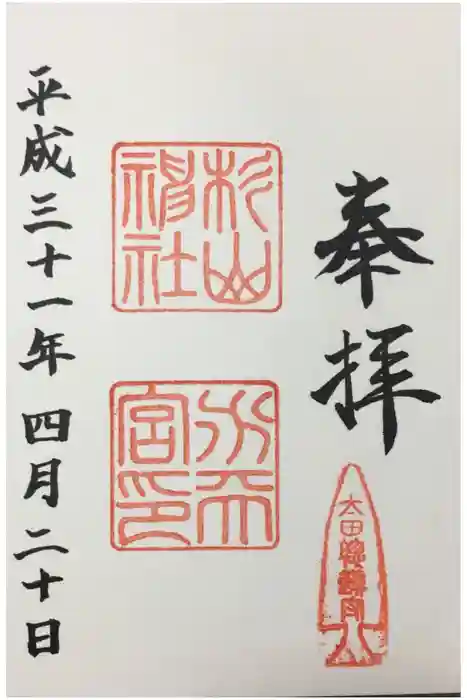 奉拝
太田總鎮守
杉山
神社
水天
宮印
平成三十一年四月二十日